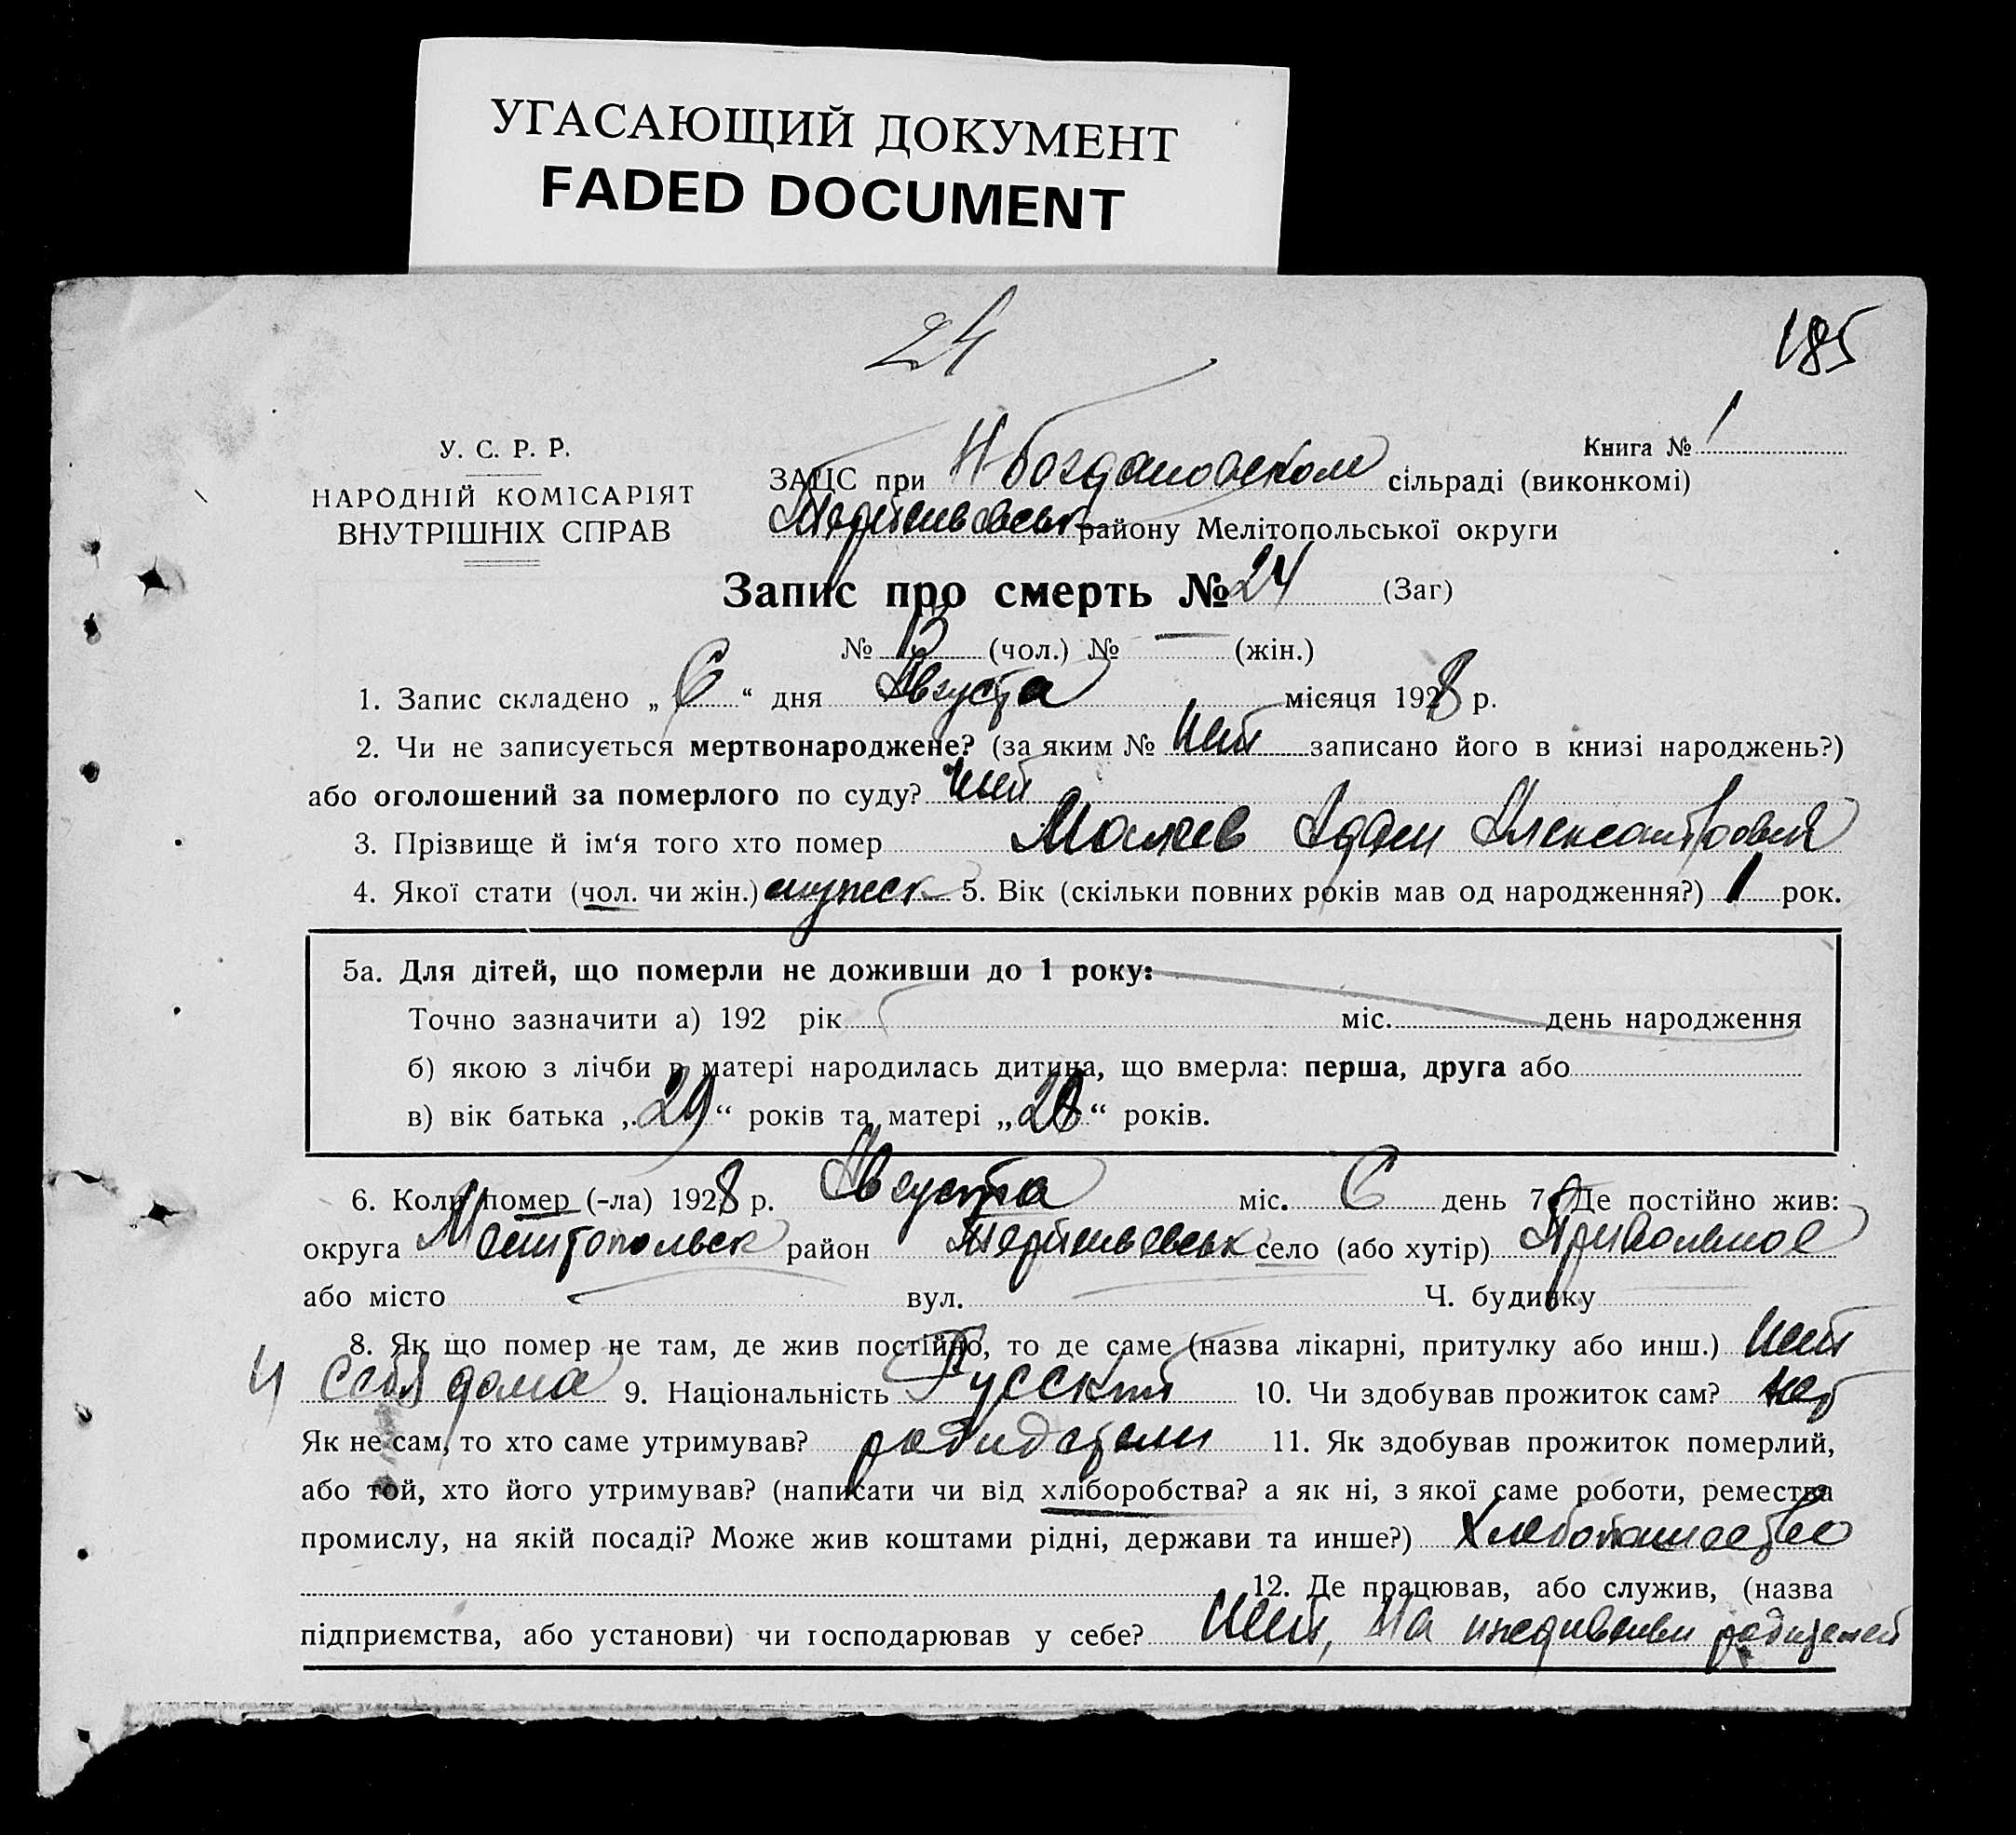 УГАСАЮЩИЙ ДОКУМЕНТ
FADED DOCUMENT
24
185
Книга № 1
У. С. Р. Р.
НАРОДНІЙ КОМІСАРІЯТ
ВНУТРІШНІХ СПРАВ
ЗАЦС при Н-Богдановском сільраді (виконкомі)
району Мелітопольської округи
Запис про смерть № 24 (Заг)
№ 13 (чол.) № — (жін.)
1. Запис складено „ 6 “ дня Августа місяця 1928 р.
2. Чи не записується мертвонароджене? (за яким № нет записано його в книзі народжень?)
або оголошений за померлого по суду? нет
3. Прізвище й ім‘я того хто помер Адам Александрович
4. Якої стати (чол. чи жін.) мужск 5. Вік (скільки повних років мав од народження?) 1 рок.
5а. Для дітей, що померли не доживши до 1 року:
Точно зазначити а) 192 рік міс. день народження
б) якою з лічби в матері народилась дитина, що вмерла: перша, друга або
в) вік батька „ 29 “ років та матері „ 28 “ років.
6. Коли помер (-ла) 1928 р. Августа міс. 6 день 7. Де постійно жив:
округа район село (або хутір) Привольное
або місто вул. Ч. будинку
8. Як що помер не там, де жив постійно, то де саме (назва лікарні, притулку або инш.) нет
у себя дома 9. Національність Русский 10. Чи здобував прожиток сам? нет
Як не сам, то хто саме утримував? родители 11. Як здобував прожиток померлий,
або той, хто його утримував? (написати чи від хліборобства? а як ні, з якої саме роботи, ремества
промислу, на якій посаді? Може жив коштами рідні, держави та инше?) Хлебопашество
12. Де працював, або служив, (назва
підприємства, або установи) чи господарював у себе? нет, На иждивении родителей